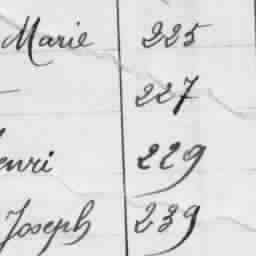 Marie 225
— 227
enri 229
Joseph 239